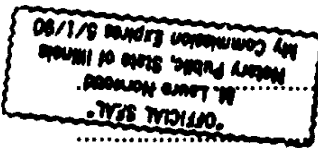 "OFFICIAL SEAL"
M. Laura Norwood
Notary Public, State of Illinois
My Commission Expires 5/1/90